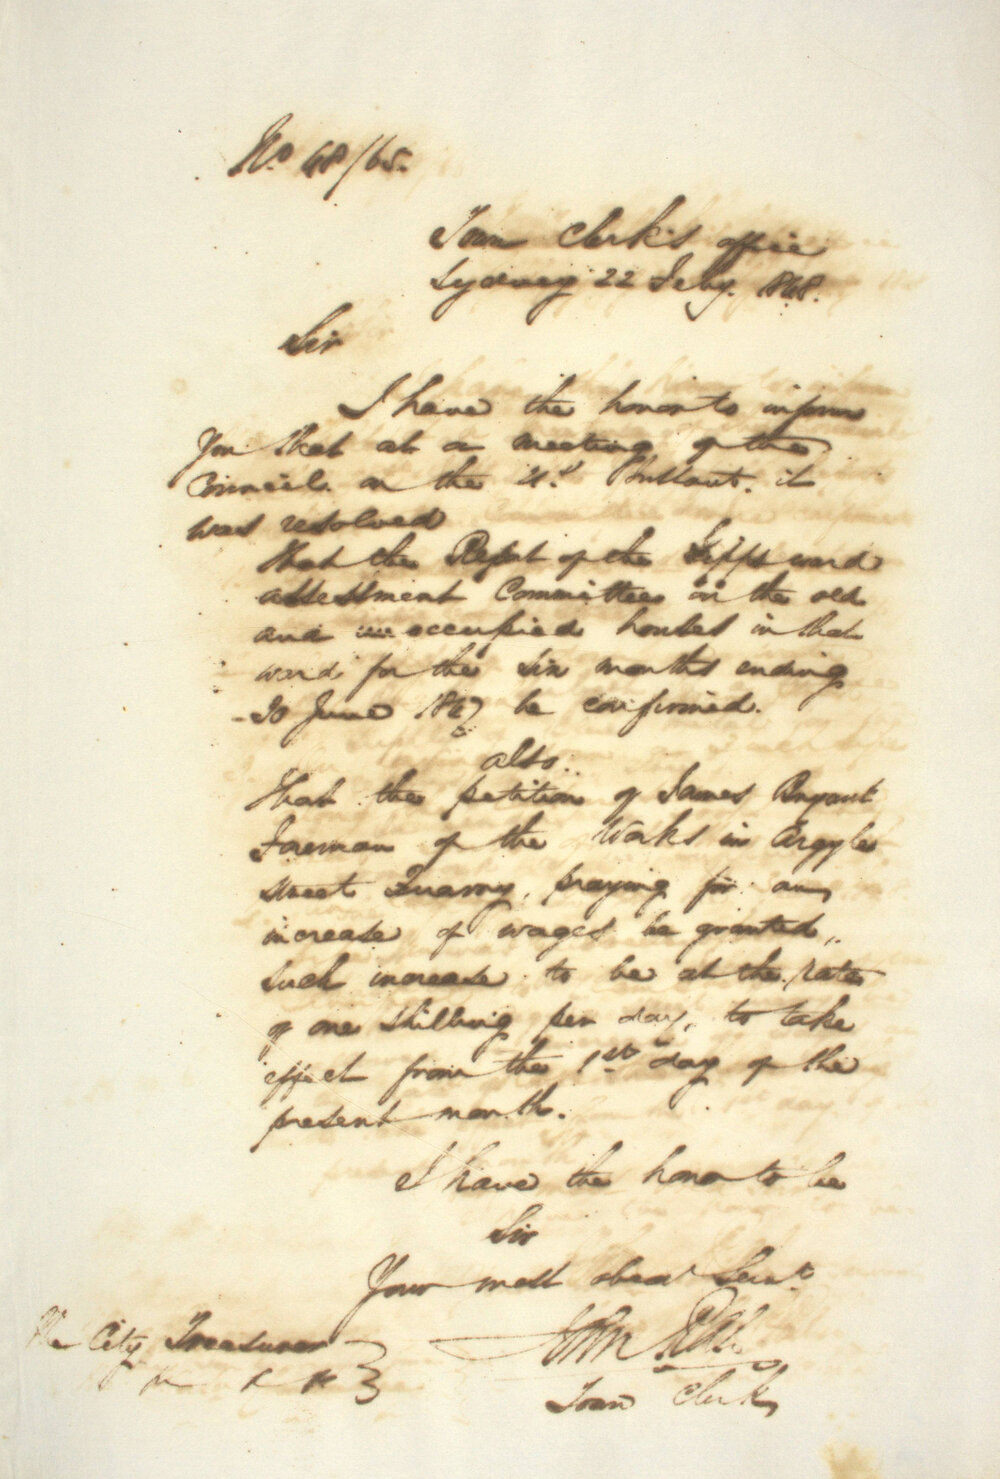 No 48/65.
Town Clerk's office
Sydney 22 Feby. 1848.
Sir
I have the honor to inform
You that at a meeting of the
Council on the 21st Instant. it
was resolved
That the Report of the Gipps ward
assessment Committee on the old
and unoccupied houses in that
ward for the six months ending
30 June 1847 be confirmed.
also.
That the petition of James Bryant
Foreman of the Works in Argyle
Street Quarry, praying for an
increase of wages be granted,
such increase to be at the rate
of one shilling per day, to take
effect from the 1st day of the
present month.
I have the honor to be
Sir
Your most obedt Servt
John
The City Treasurer
Town Clerk